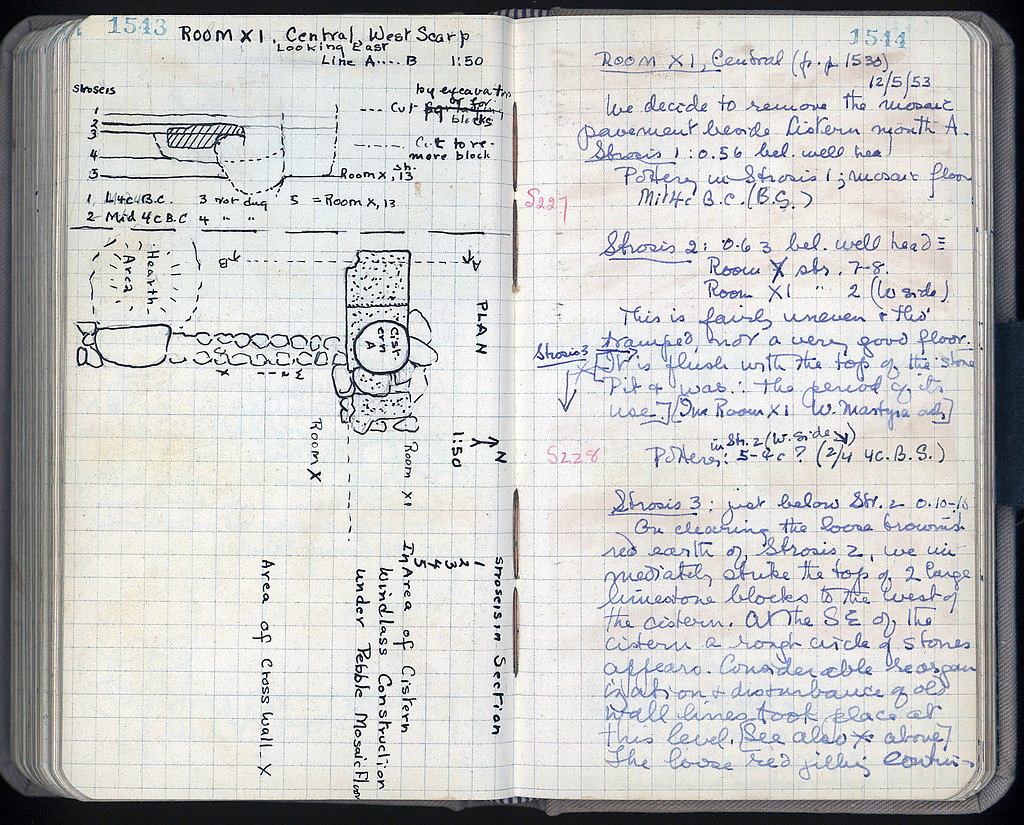 1543
Room XI, Central, West Scarp
Looking East
Line A.... B 1:50
Stroseis
1
2
3
4
5
by excavator
Cut
or for
blocks
Cut to re-
move block
Room X, sh. 13
1 L4c B.C. 3 not dug 5 = Room X, 13
2 Mid 4c B.C 4 " "
Hearth
Area
B
A
PLAN
Cist-
ern
A
X
Room X
Room XI
1:50
N
Stroseis in Section
1
2
3
4
5
In Area of Cistern
Windlass Construction
under Pebble Mosaic Floor
Area of Cross Wall X
1544
Room XI, Central (fr. p. 1530)
12/5/53
We decide to remove the mosaic
pavement beside Cistern mouth A.
Strosis 1: 0.56 bel. well head
Pottery in Strosis 1; mosaic floor
Mid 4c B.C. (B.S.)
S227
Strosis 2: 0.63 bel. well head =
Room X sbs. 7-8.
Room XI " 2 (W side)
This is fairly uneven & tho'
tramped, not a very good floor.
Strosis 3
It is flush with the top of the stone
Pit & was ∴ the period of its
use.] [In Room XI W. Martyra adj]
in Str. 2 (W. side)
S228
Pottery: 5-4c ? (2/4 4c. B.S.)
Strosis 3: just below Str. 2 0.10-15
On clearing the loose brownish
red earth of Strosis 2, we im-
mediately strike the top of 2 large
limestone blocks to the west of
the cistern. At the SE of the
cistern a rough circle of stones
appears. Considerable reorgan
ization & disturbance of old
wall lines took place at
this level. [See also X above]
The loose red filling contin-